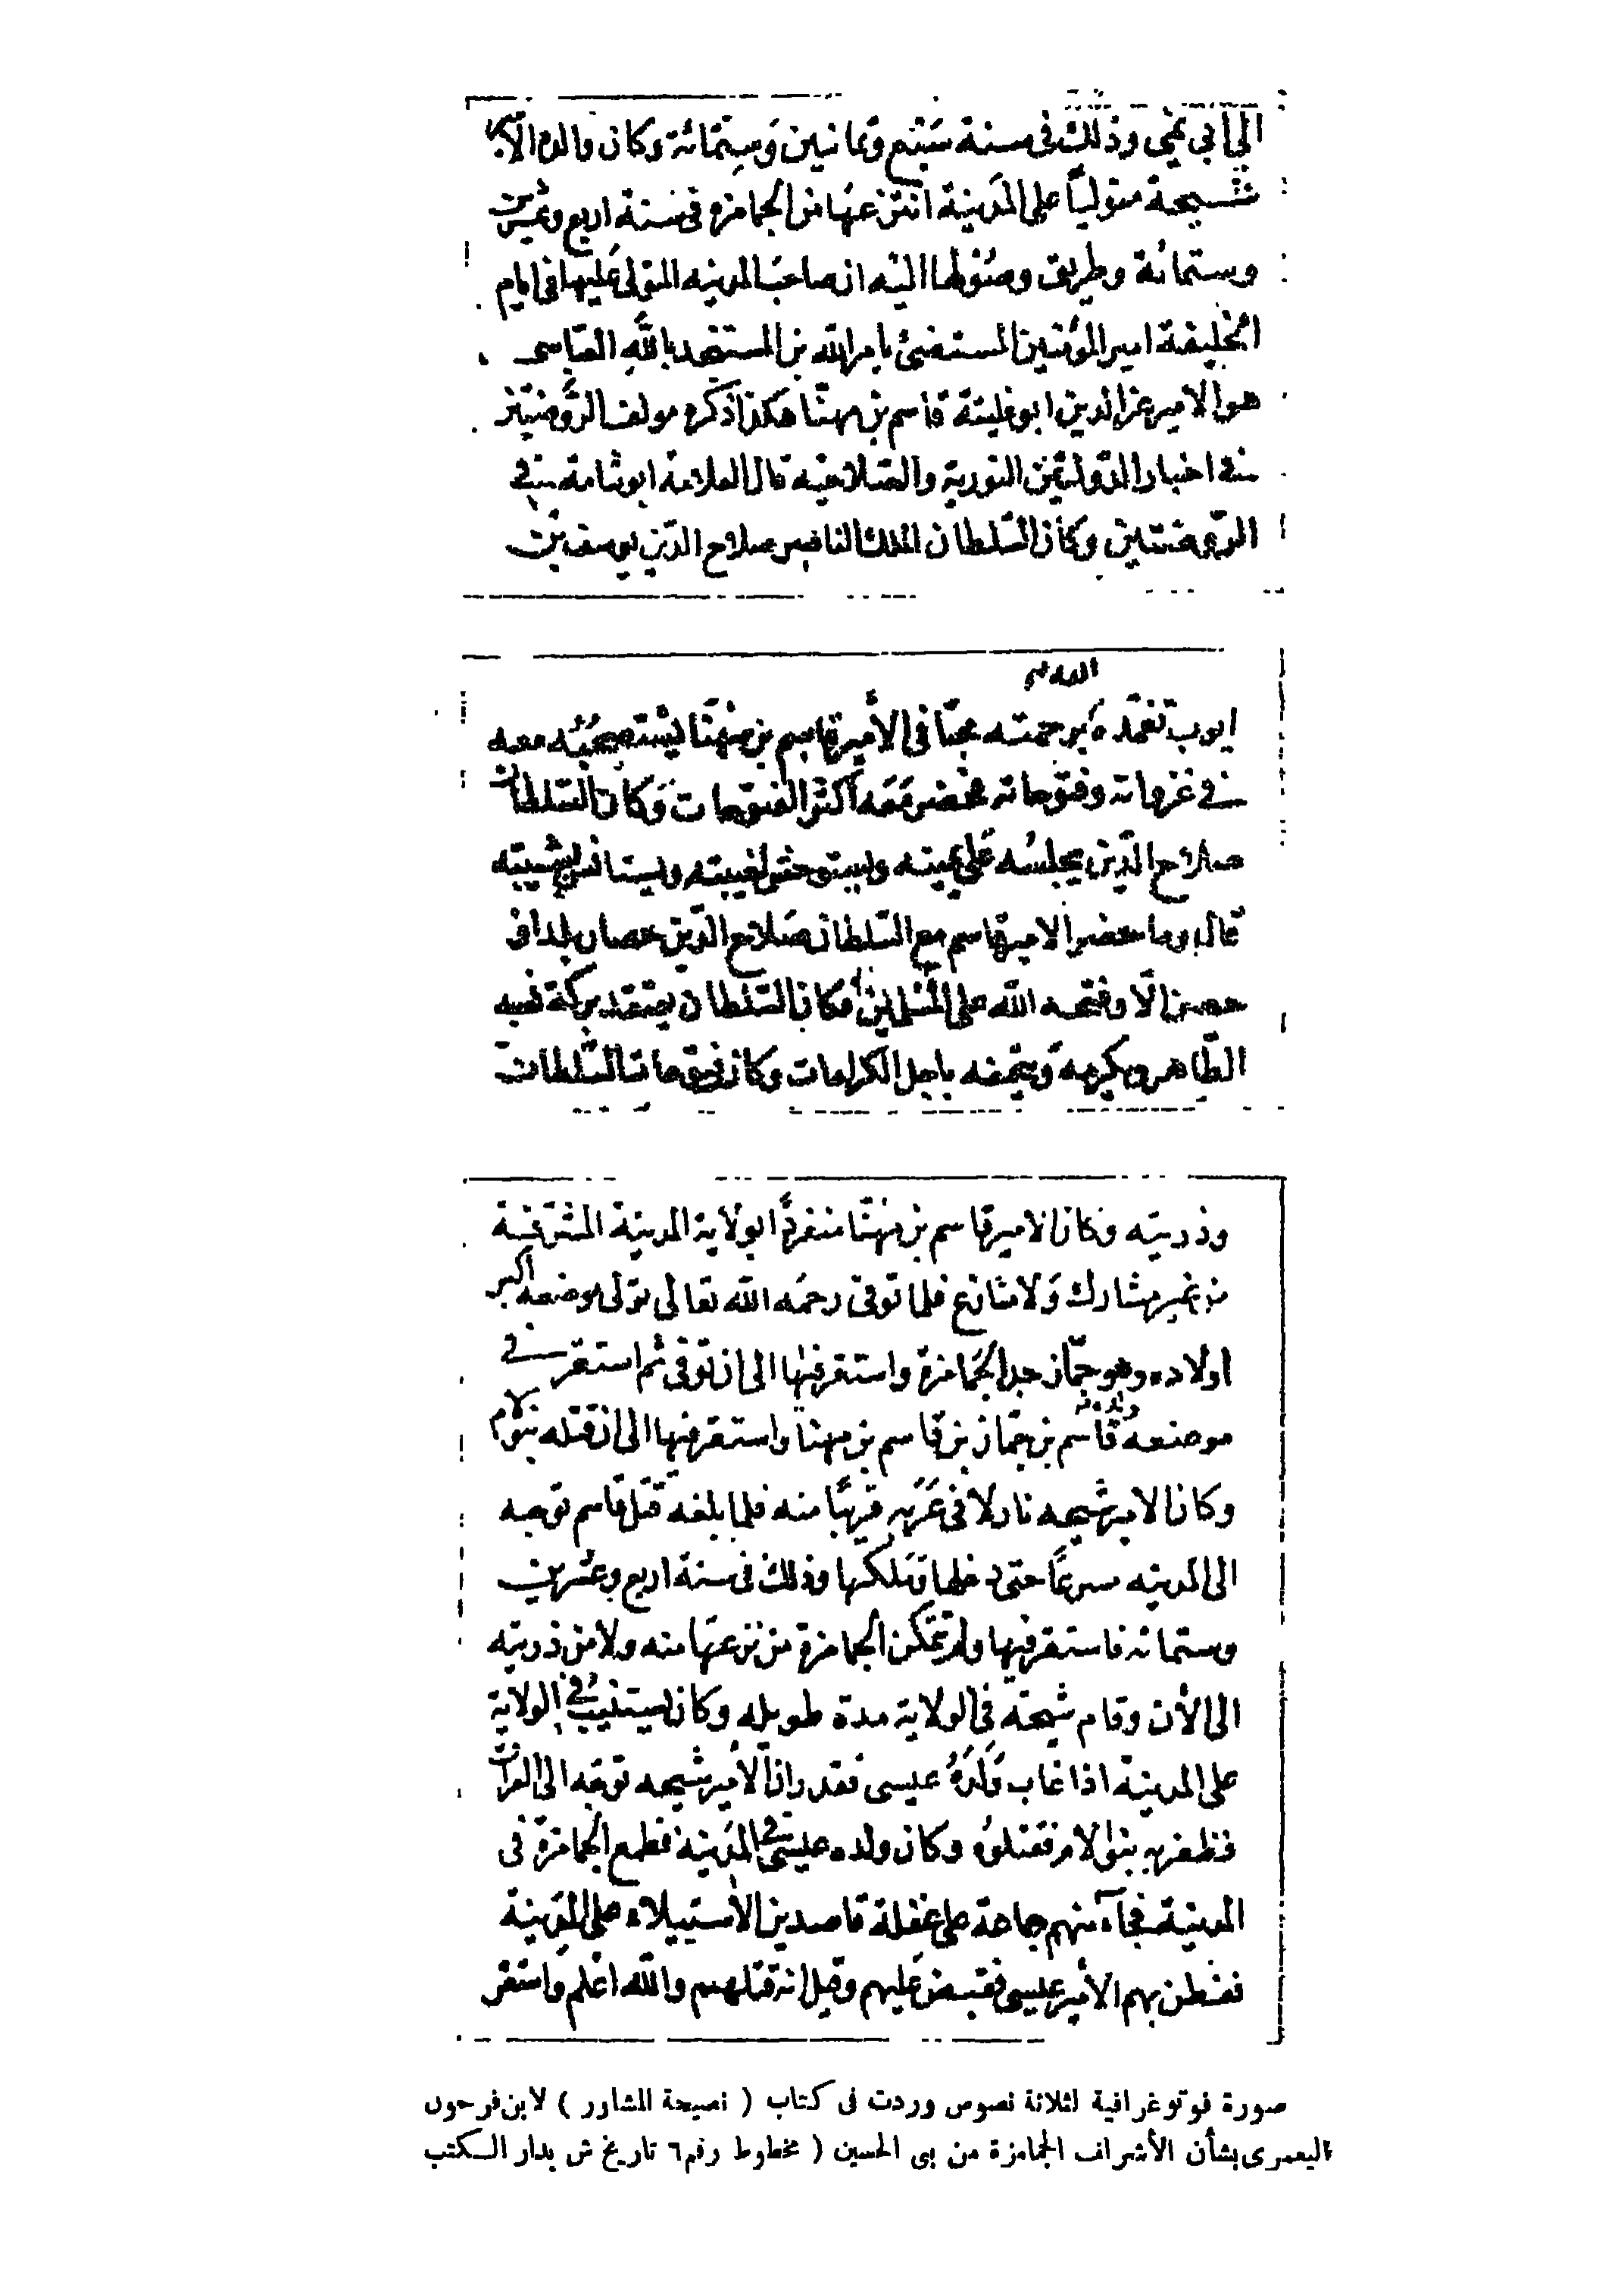 الى ابي نمي وذلك في سنة سَبْع وَثمانيين وَسِتمّائة وكان والده الأمير
شيحة متوليًا على المَدينة انتزعهَا من الجمامزه في سنة اربع وعشرين
وستمائة وطريق وصُوْلها اليْه ان صاحبَ المدينه المتولى عَليها في ايام
الخليفة امير المؤمنين المستضئ بامر الله بن المستنجد بالله العباسي
هو الامير عز الدين ابو فليتة قاسم بن مهنّا هكذا ذكره مولف الرَّوضتين
في اخبار الدّولتين النورية والصّلاحيّه قال العلامة ابو شامة في
الرّوضتين وكانَ السّلطان الملك الناصر صلاح الدّين يوسف بن
الله
ايوب تغمّده برحمته محبًا في الأمير قاسم بن مهَنّا يسْتصحبُه معه
في غزواته وفتوحاته فحضر مَعَه أكثر الفتوحات وَكان السّلطان
صلاح الدّين يجلسُه عَلى يمينه ويستوحش لغيبته ويستانس بشيبته
قال وما حضر الامير قاسم مع السّلطان صَلاح الدّين حصار بلد او
حصن الّا وفتحه الله على المُسْلمين فكان السّلطان يعتقد بركة نسبه
الطّاهر ويكرمه وَيتحفه باجل الكرامات وكان فتوحات السّلطان
وذريته وكان الامير قاسم بن مُهنّا منفردًا بولاية المدينة الشريفة
من غير مشارك وَلا منازع فلما توفى رحمَه الله تعالى تولى موضعه أكبر
اولاده وهو جمّاز جد الجَمامزة واستقر فيْها الى ان توفى ثم استقر في
ولده
موضعهُ قاسم بن جمّاز بن قاسم بن مهنا واستقر فيها الى ان قتله بنو لام
وكان الامير شيحه نازلا في عَرَبه قريبًا منه فلما بلغه قتل قاسم توجه
الى المدينه مسرعًا حتى دخلها وَملكها وذلك في سنة اربع وعشرين
وستمائه فاستقر فيها ولم تتمكن الجمامزة من نزعهَا منه ولا من ذريته
الى الأن وقام شيحَه في الولاية مدة طويله وكان يستنيبُ في الولاية
على المدينة اذا غاب وَلَدَهُ عيسى فقدر ان الأمير شيحه توجّه الى العراق
فظفر به بنوا لام فقتلوُه وكان ولده عيسى في المدَينة فطمع الجمامزة في
المدينة فجآء منهم جماعة على غفلة قاصدين الاستيلاء على المدَينة
ففطن بهم الأمير عيسى فقبض عَليهم وقيل انه قتلهم والله اعْلم وَاستقر
صورة فوتوغرافية لثلاثة نصوص وردت فى كتاب ( نصيحة المشاور ) لابن فرحون
اليعمرى بشأن الأشراف الجمامزة من بى الحسين ( مخطوط رقم ٦ تاريخ ش بدار الكتب